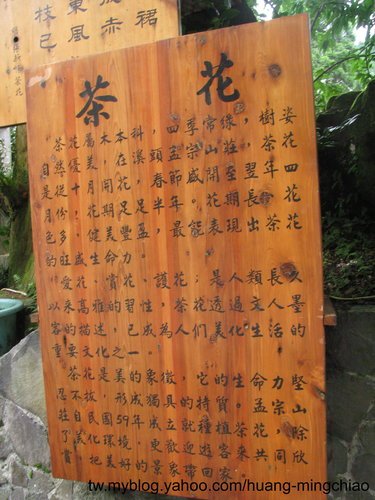 枝已裙
東風赤
茶花
茶花屬木本科,四季常綠,樹姿
優美,在溪頭孟宗山莊,茶花
自然從十月開花春節盛開至翌年四
月份,花期足足半年,花期長茶花
色多,健美豐盈,最能表現出花
的旺盛生命力.
愛花、賞花、護花;是人類長久
以來的高雅的習性,茶花透過文人墨
客描述,已成為人們美化生活的
重要文化之一.
茶花是美的象徵,它的生命力堅
忍不拔,形成獨具的特質.孟宗山
莊自民國59年成立就種植茶花,除
了美化環境更歡迎遊客來共同欣
賞,把美好的景象帶回家.
tw.myblog.yahoo.com/huang-mingchiao